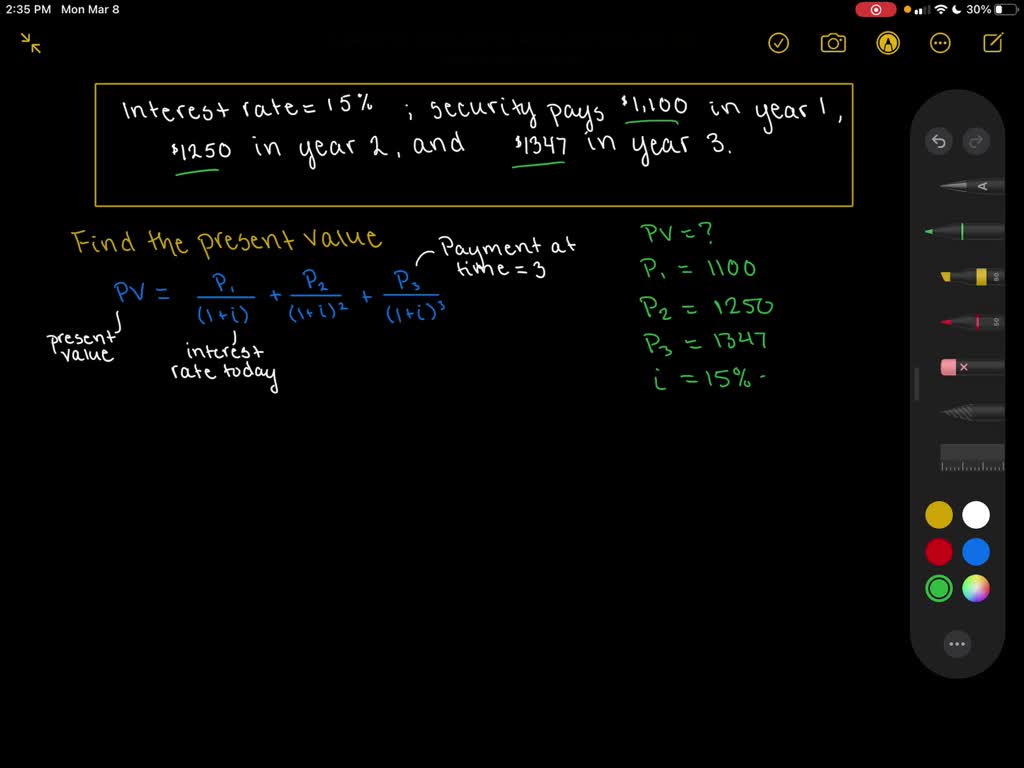 2:35 PM Mon Mar 8
30%
Interest rate = 15% ; security pays $1,100 in year 1,
$1250 in year 2, and $1347 in year 3.
Find the present value
Payment at
time = 3
PV = P1/(1+i) + P2/(1+i)² + P3/(1+i)³
present
value
interest
rate today
PV = ?
P1 = 1100
P2 = 1250
P3 = 1347
i = 15%
A
80
50